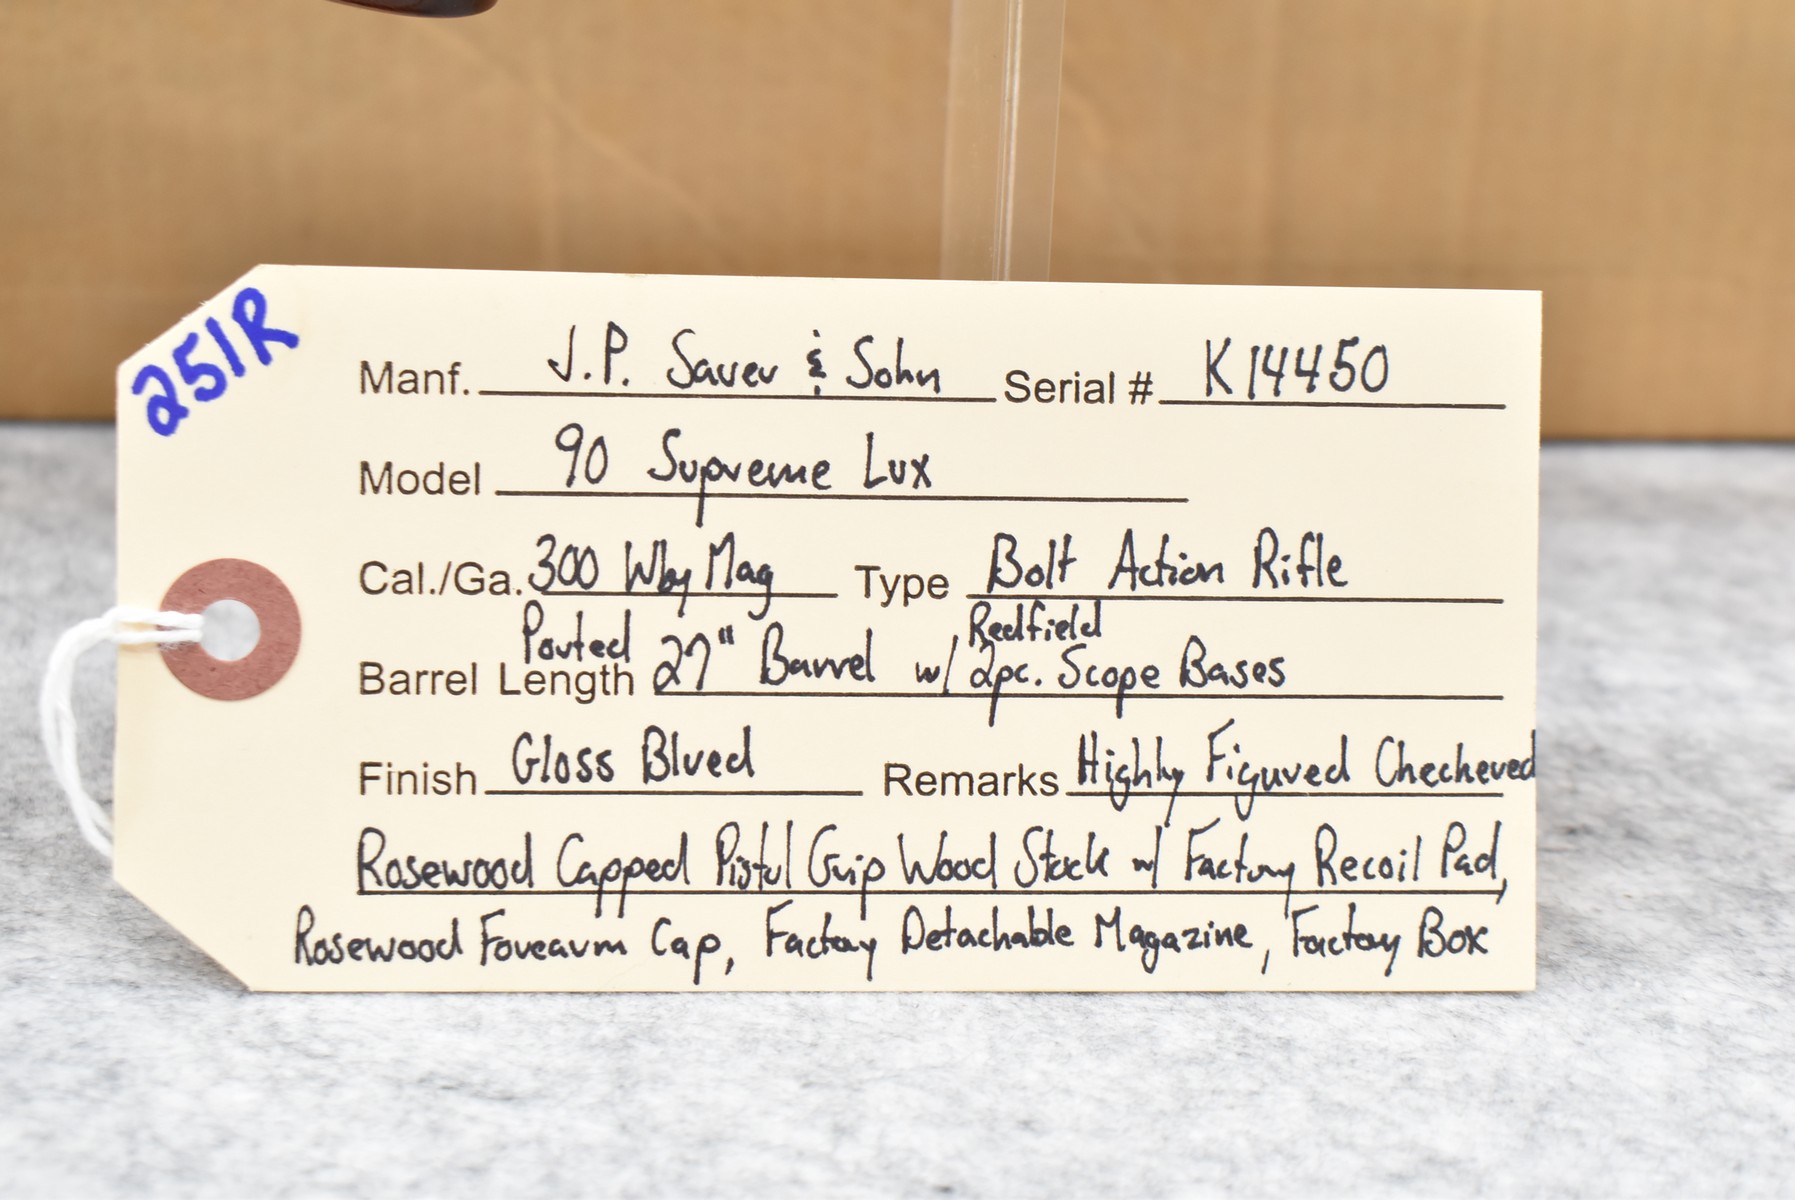 251R
Manf. J.P. Sauer & Sohn Serial # K14450
Model 90 Supreme Lux
Cal./Ga. 300 Wby Mag Type Bolt Action Rifle
Ported Redfield
Barrel Length 27" Barrel w/ 2pc. Scope Bases
Finish Gloss Blued Remarks Highly Figured Checkered
Rosewood Capped Pistol Grip Wood Stock w/ Factory Recoil Pad,
Rosewood Forearm Cap, Factory Detachable Magazine, Factory Box